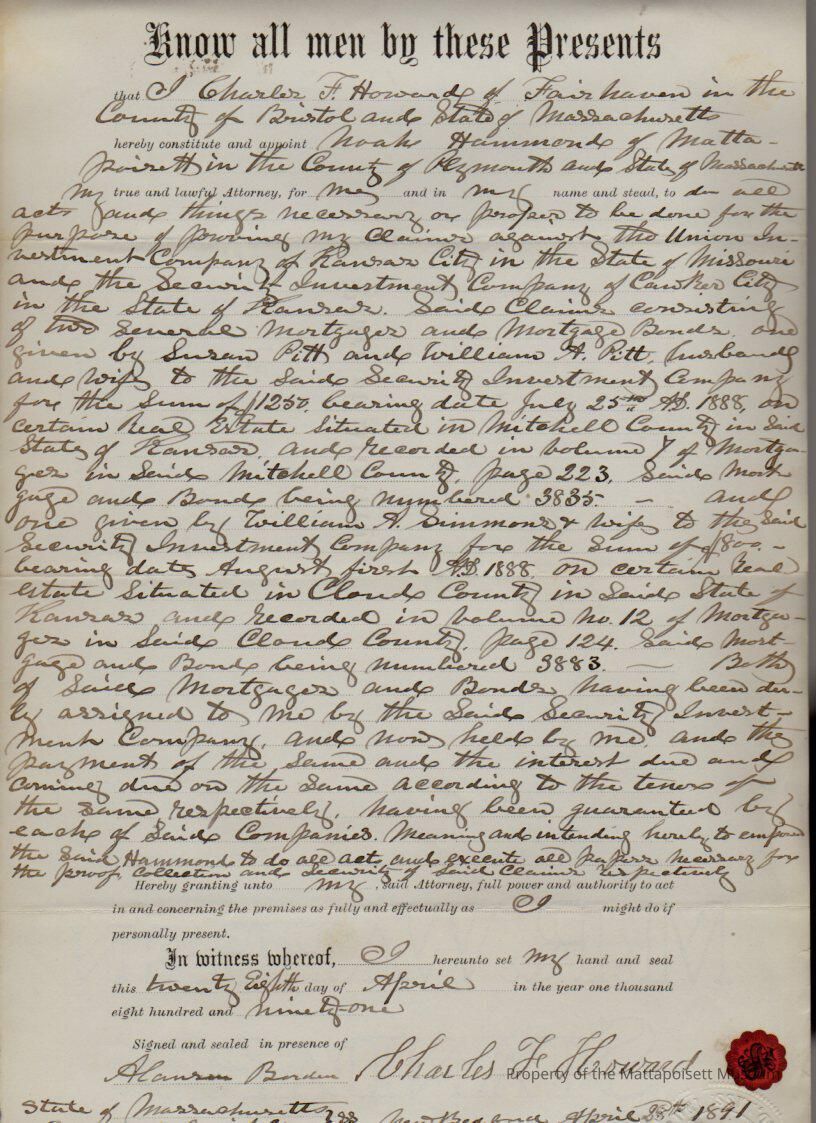 Know all men by these Presents
that I Charles F. Howard of Fairhaven in the
County of Bristol and State of Massachusetts
hereby constitute and appoint Noah Hammond of Matta-
poisett in the County of Plymouth and State of Massachusetts
my true and lawful Attorney, for me and in my name and stead, to do all
acts and things necessary or proper to be done for the
purpose of proving my Claims against the Union In-
vestment Company of Kansas City in the State of Missouri
and the Security Investment Company of Cawker City
in the State of Kansas. Said Claims consisting
of two several Mortgages and Mortgage Bonds, one
given by Susan Pitt and William A. Pitt, husband
and wife to the said Security Investment Company
for the Sum of $1250. bearing date July 25th A.D. 1888, on
certain Real Estate situated in Mitchell County in said
State of Kansas, and recorded in volume 7 of Mortga-
ges in said Mitchell County, page 223, Said Mort
gage and Bond being numbered 3835 — and
one given by William A. Simmons & wife to the said
Security Investment Company for the sum of $800. —
bearing date August first A.D. 1888, on certain Real
Estate situated in Cloud County in said State of
Kansas and recorded in volume No. 12 of Mortga-
ges in said Cloud County, page 124. Said Mort-
gage and Bond being numbered 3883. — Both
of said Mortgages and Bonds having been du-
ly assigned to me by the said Security Invest-
ment Company, and now held by me, and the
payment of the same and the interest due and
coming due on the same according to the tenor of
the same respectively, having been guaranteed by
each of said Companies. Meaning and intending hereby to empower
the said Hammond to do all acts and execute all papers necessary for
the proof, collection and security of said Claims respectively
Hereby granting unto my, said Attorney, full power and authority to act
in and concerning the premises as fully and effectually as I might do if
personally present.
In witness whereof, I hereunto set my hand and seal
this twenty Eighth day of April in the year one thousand
eight hundred and ninety-one
Signed and sealed in presence of
Alanson Borden Charles F. Howard
Property of the Mattapoisett Museum
State of Massachusetts ss New Bedford April 28th 1891